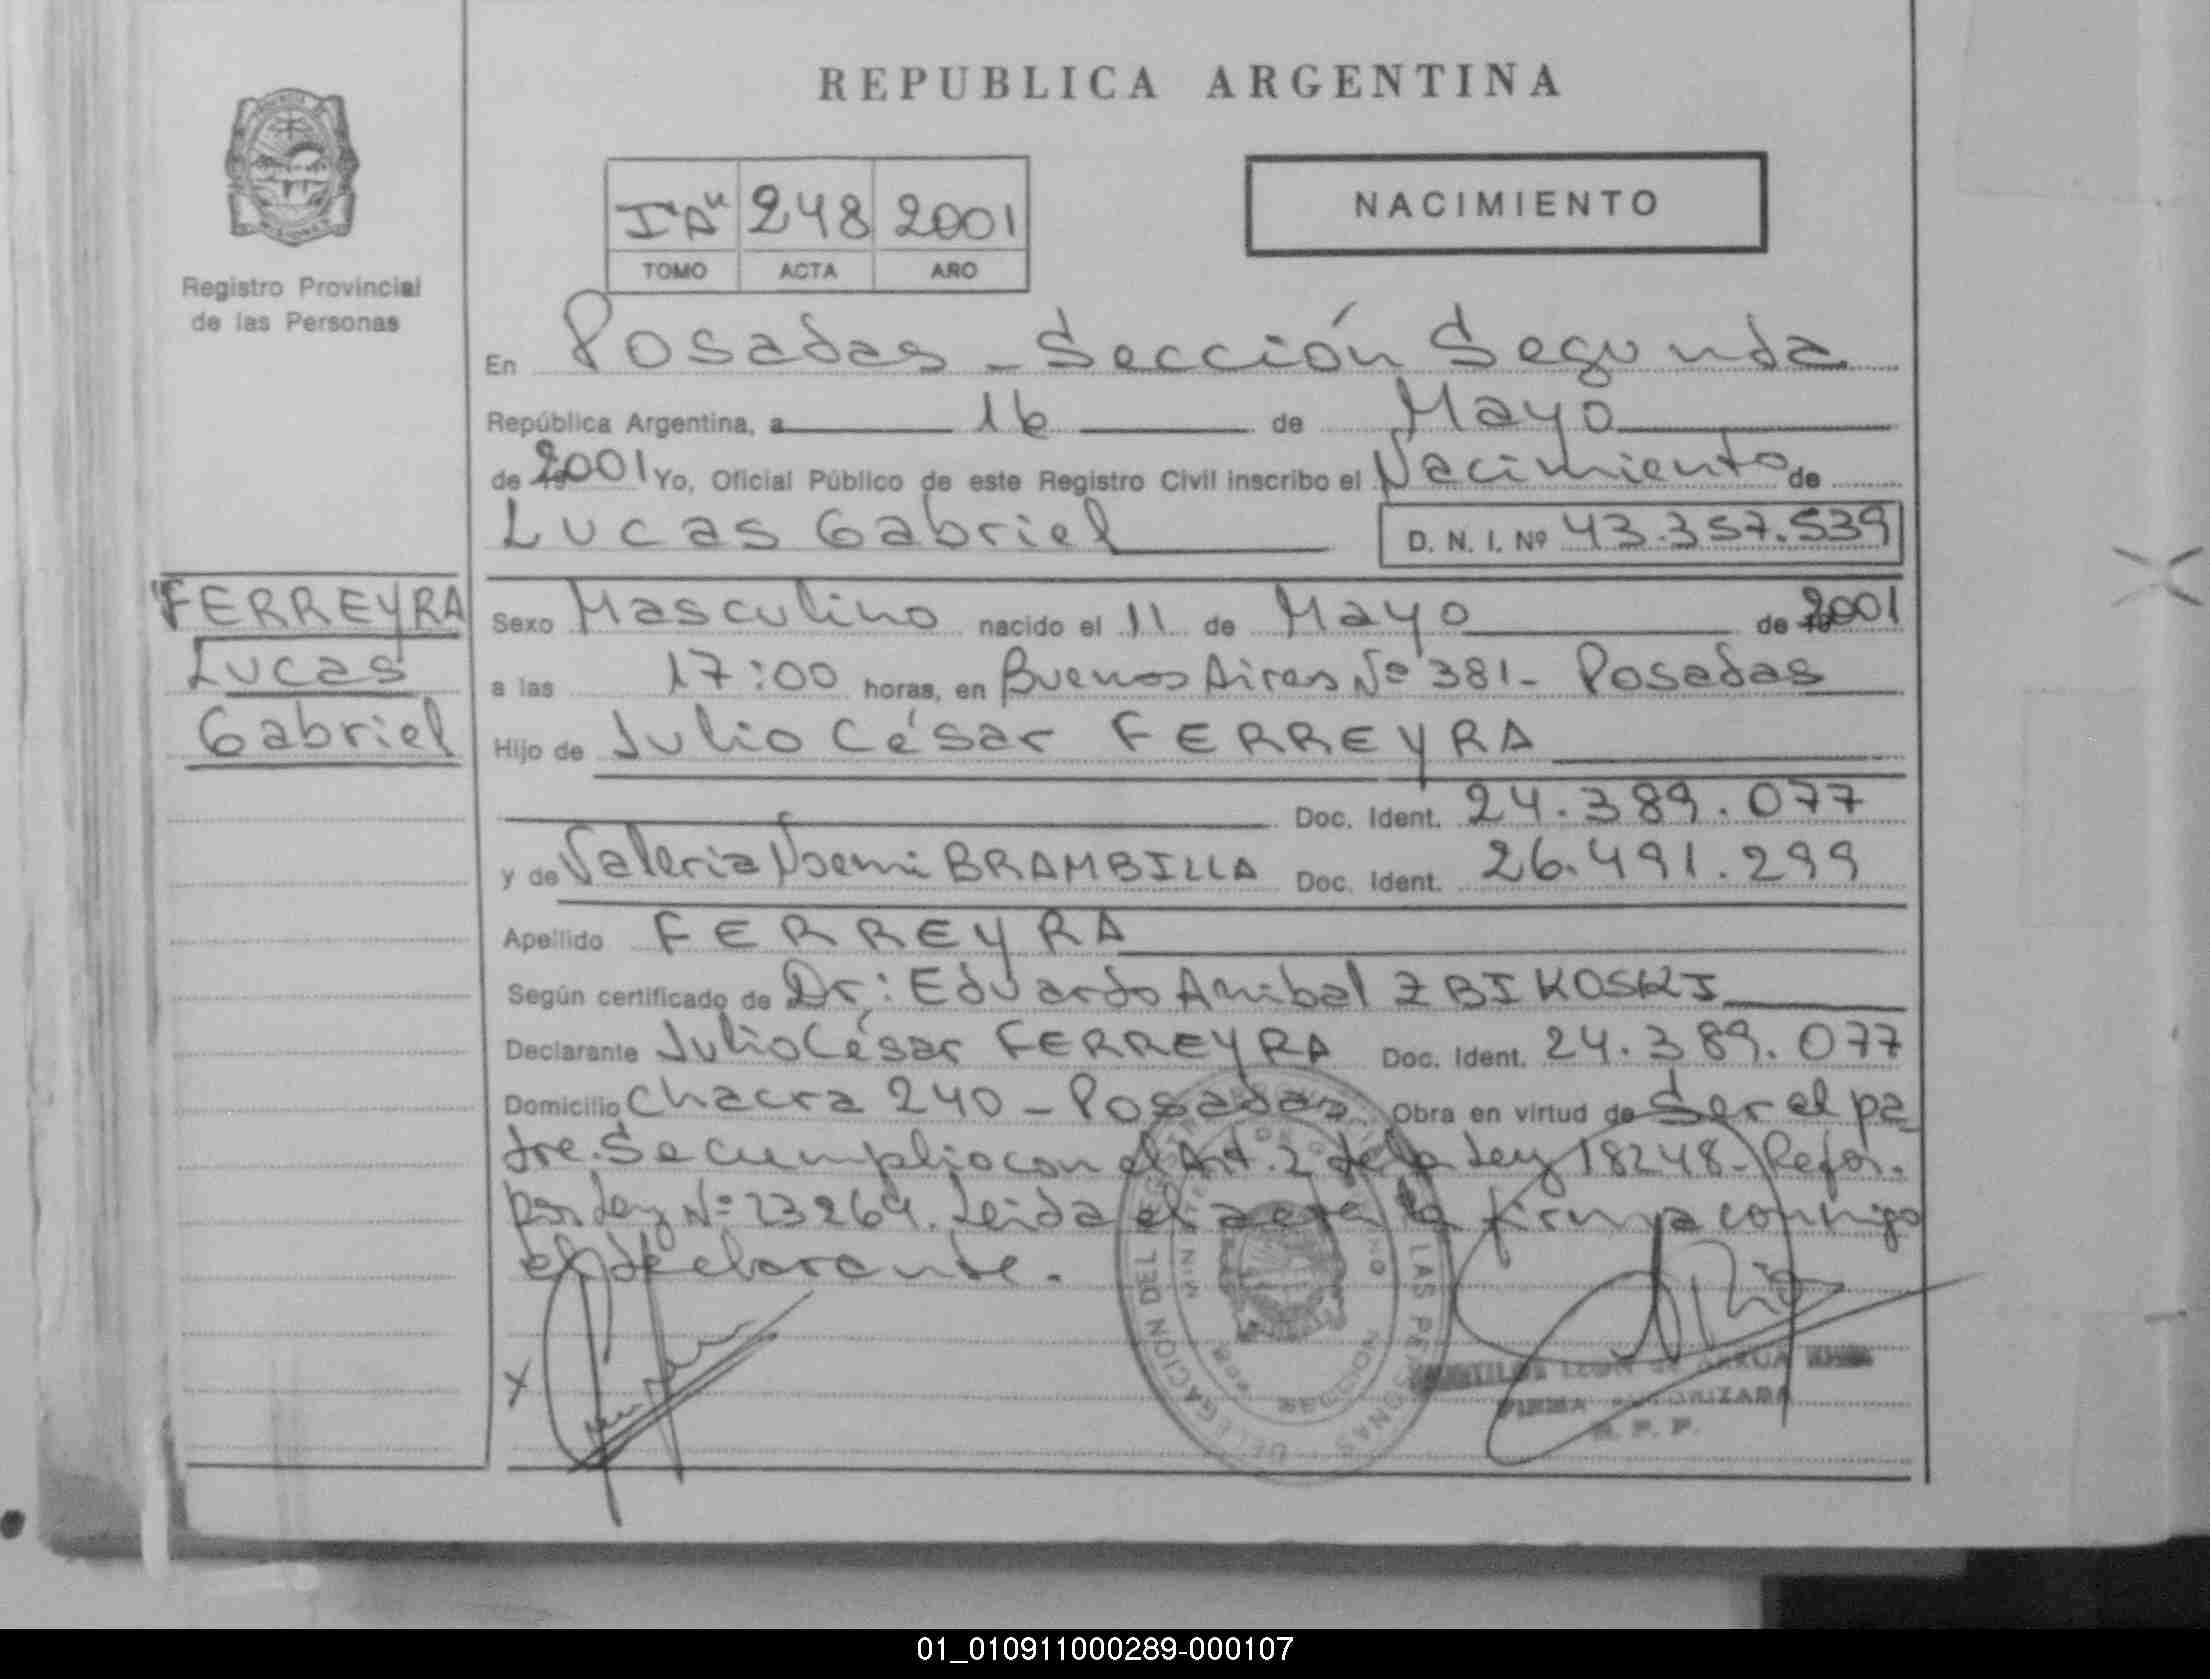 REPUBLICA ARGENTINA
I "A" 248 2001
TOMO ACTA AÑO
NACIMIENTO
Registro Provincial
de las Personas
En Posadas - Sección Segunda
República Argentina, a 16 de Mayo
de 2001 Yo, Oficial Público de este Registro Civil inscribo el Nacimiento de
Lucas Gabriel D. N. I. Nº 43.357.539
FERREYRA
Lucas
Gabriel
Sexo Masculino nacido el 11 de Mayo de 2001
a las 17:00 horas, en Buenos Aires Nº 381 - Posadas
Hijo de Julio César FERREYRA
Doc. Ident. 24.389.077
y de Valeria Noemi BRAMBILLA Doc. Ident. 26.491.299
Apellido FERREYRA
Según certificado de Dr: Eduardo Anibal ZBIKOSKI
Declarante Julio César FERREYRA Doc. Ident. 24.389.077
Domicilio Chacra 240 - Posadas Obra en virtud de Ser el pa
dre. Se cumplio con el Art. 2 de la Ley 18248 - Refor.
por Ley Nº 23264. Leida el acta la firma conmigo
el declarante.
X
DELEGACION
LAS PERSONAS
FIRMA AUTORIZADA
R. P. P.
01_010911000289-000107